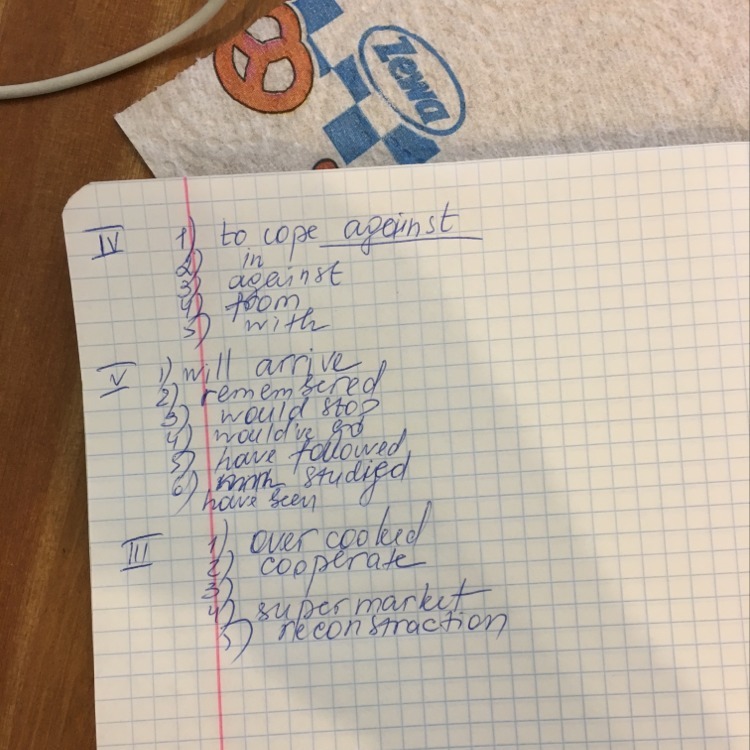 Zewa
IV 1) to cope against
2) in
3) against
4) from
5) with
V 1) will arrive
2) remembered
3) would stop
4) would've go
5) have followed
6) studied
have been
III 1) over cooked
2) cooperate
3)
4) supermarket
5) reconstraction